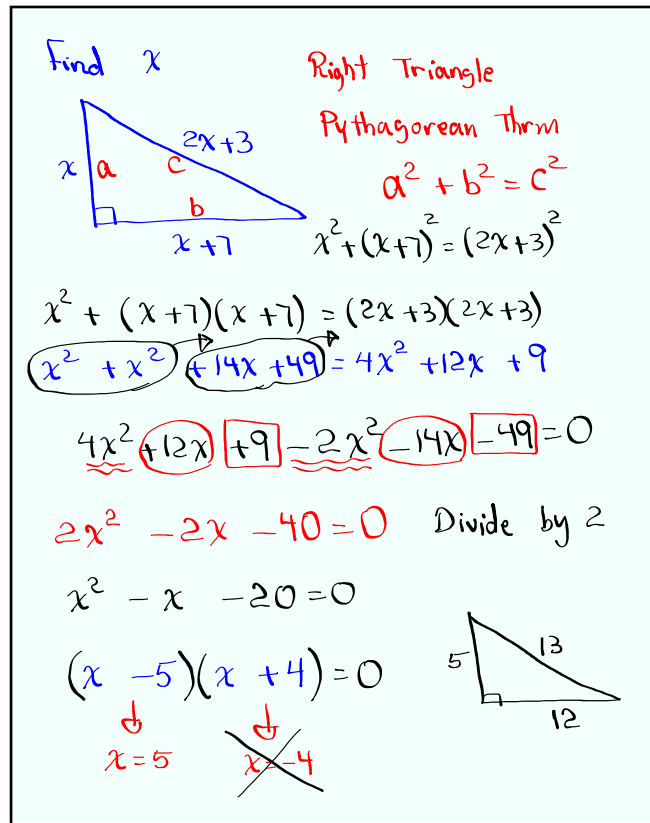 Find x
Right Triangle
Pythagorean Thrm
a² + b² = c²
x a
2x+3
c
b
x+7
x²+(x+7)²=(2x+3)²
x² + (x+7)(x+7) = (2x+3)(2x+3)
x² + x² +14x+49 = 4x² +12x +9
4x² +12x +9 -2x² -14x -49 = 0
2x² -2x -40 = 0 Divide by 2
x² - x -20 = 0
(x -5)(x +4) = 0
x = 5 x = -4
5 13
12